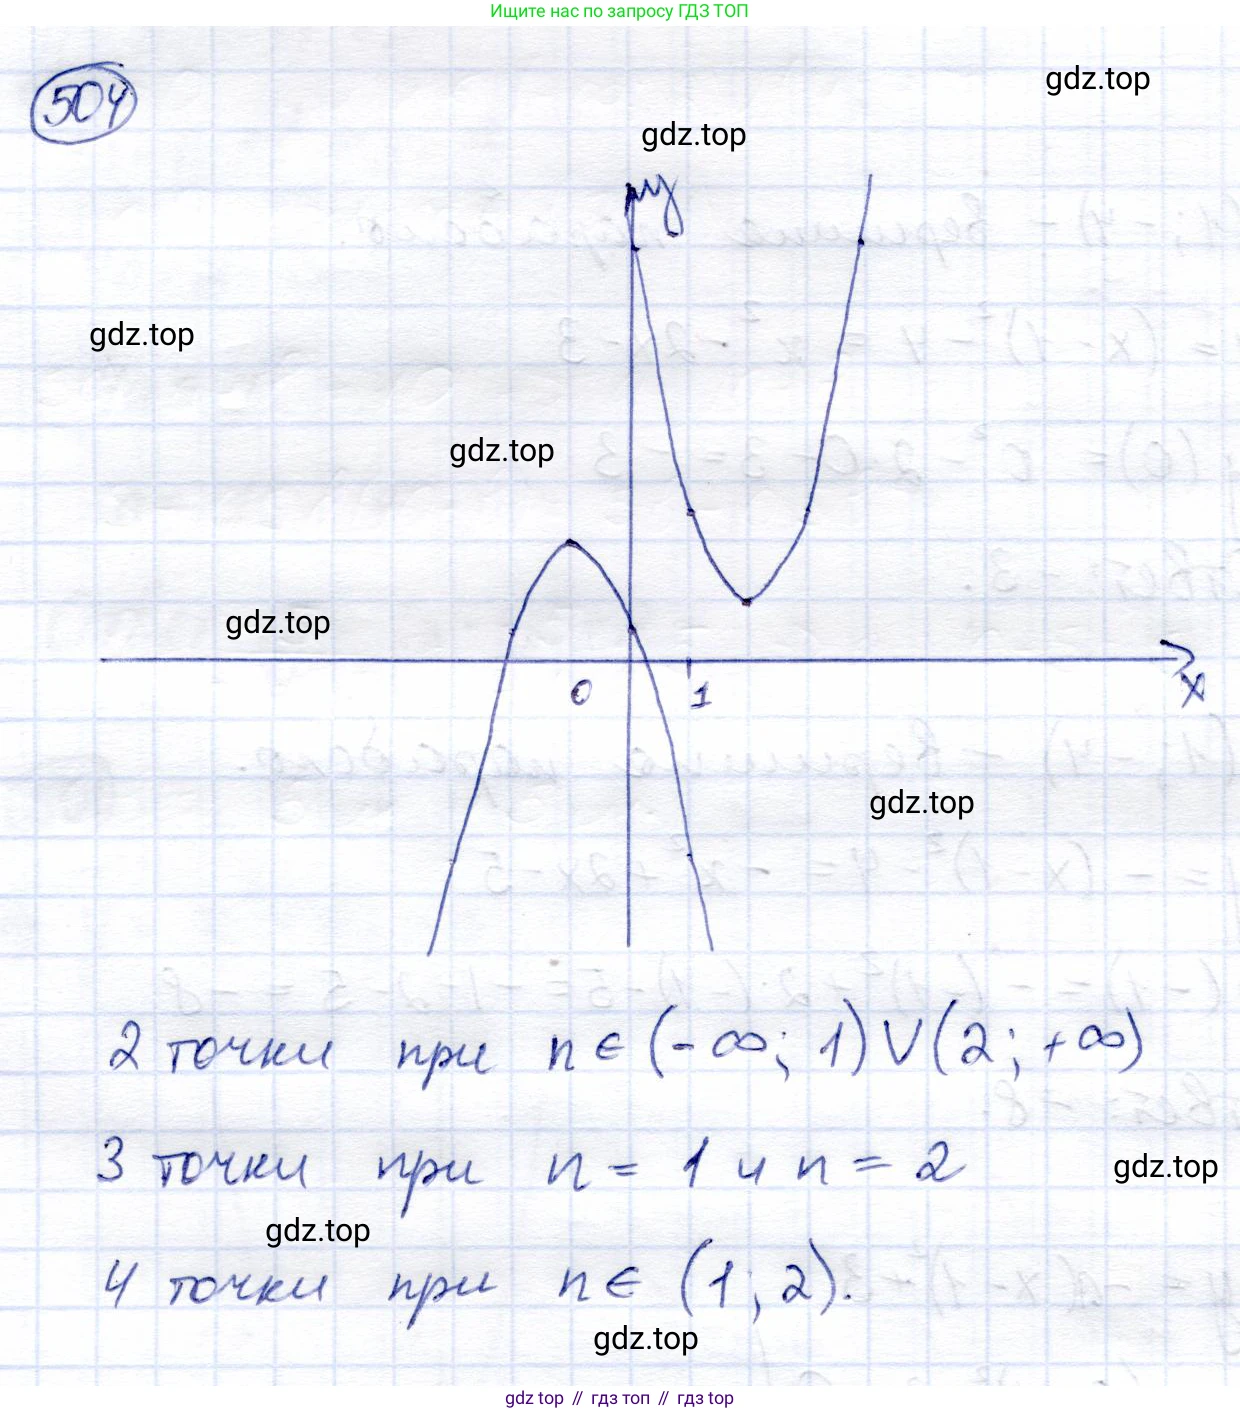 Ищите нас по запросу ГДЗ ТОП
504
gdz.top
gdz.top
y
gdz.top
gdz.top
gdz.top
0
1
x
gdz.top
2 точки при n ∈ (-∞; 1) ∪ (2; +∞)
3 точки при n = 1 и n = 2
gdz.top
gdz.top
4 точки при n ∈ (1; 2).
gdz.top
gdz top // гдз топ // гдз top